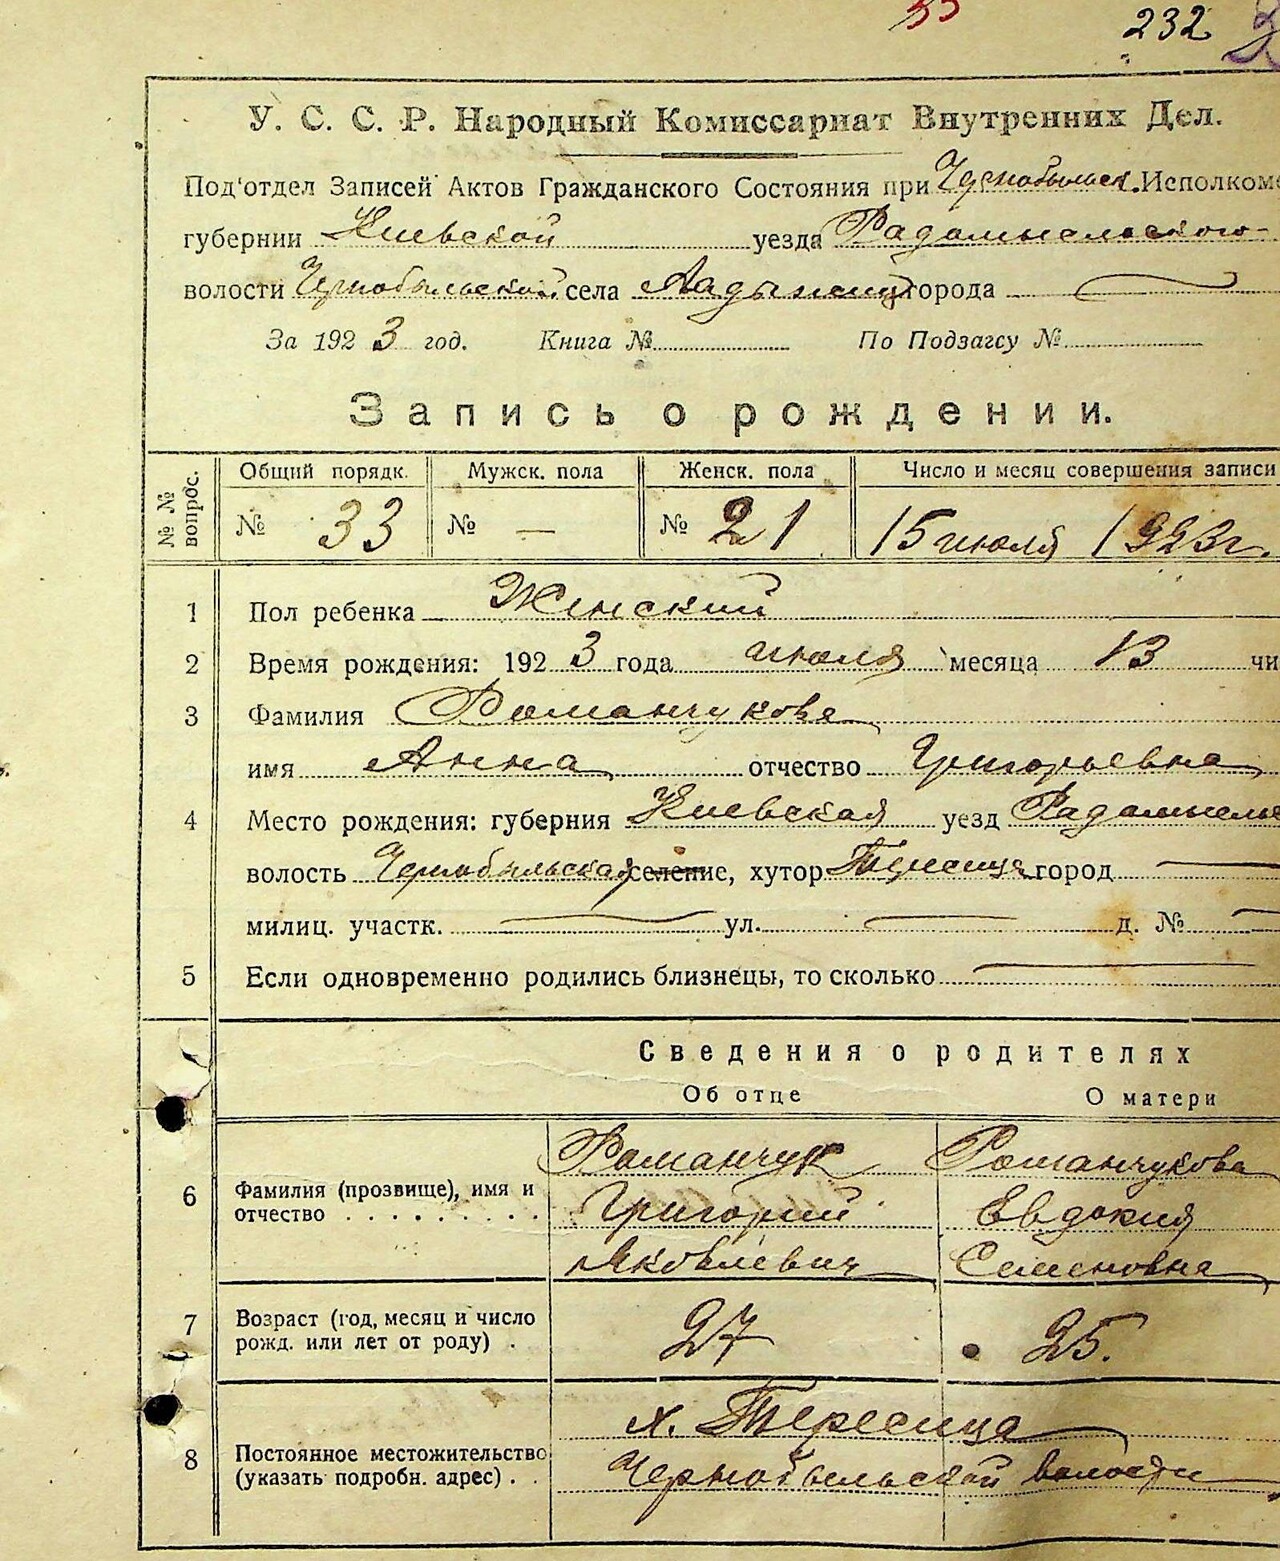 33 232
У. С. С. Р. Народный Комиссариат Внутренних Дел.
Под'отдел Записей Актов Гражданского Состояния при Чернобыльск. Исполком
губернии Киевской уезда Радомысльского
волости Чернобыльской села города
За 1923 год. Книга № По Подзагсу №
Запись о рождении.
№ № вопрос.
Общий порядк. Мужск. пола Женск. пола Число и месяц совершения записи
№ 33 № — № 21 15 июля 1923 г.
1 Пол ребенка Женский
2 Время рождения: 1923 года июля месяца 13 чи
3 Фамилия Романчукова
имя Анна отчество Григорьевна
4 Место рождения: губерния Киевская уезд Радомысль
волость Чернобыльская селение, хутор город —
милиц. участк. — ул. — д. № —
5 Если одновременно родились близнецы, то сколько —
Сведения о родителях
Об отце О матери
Романчук Романчукова
6 Фамилия (прозвище), имя и Григорий Евдокия
отчество . . . . . . . . . Яковлевич Семеновна
7 Возраст (год, месяц и число 27 25.
рожд. или лет от роду) .
х. Тересица
8 Постоянное местожительство Чернобыльской волости
(указать подробн. адрес) . .